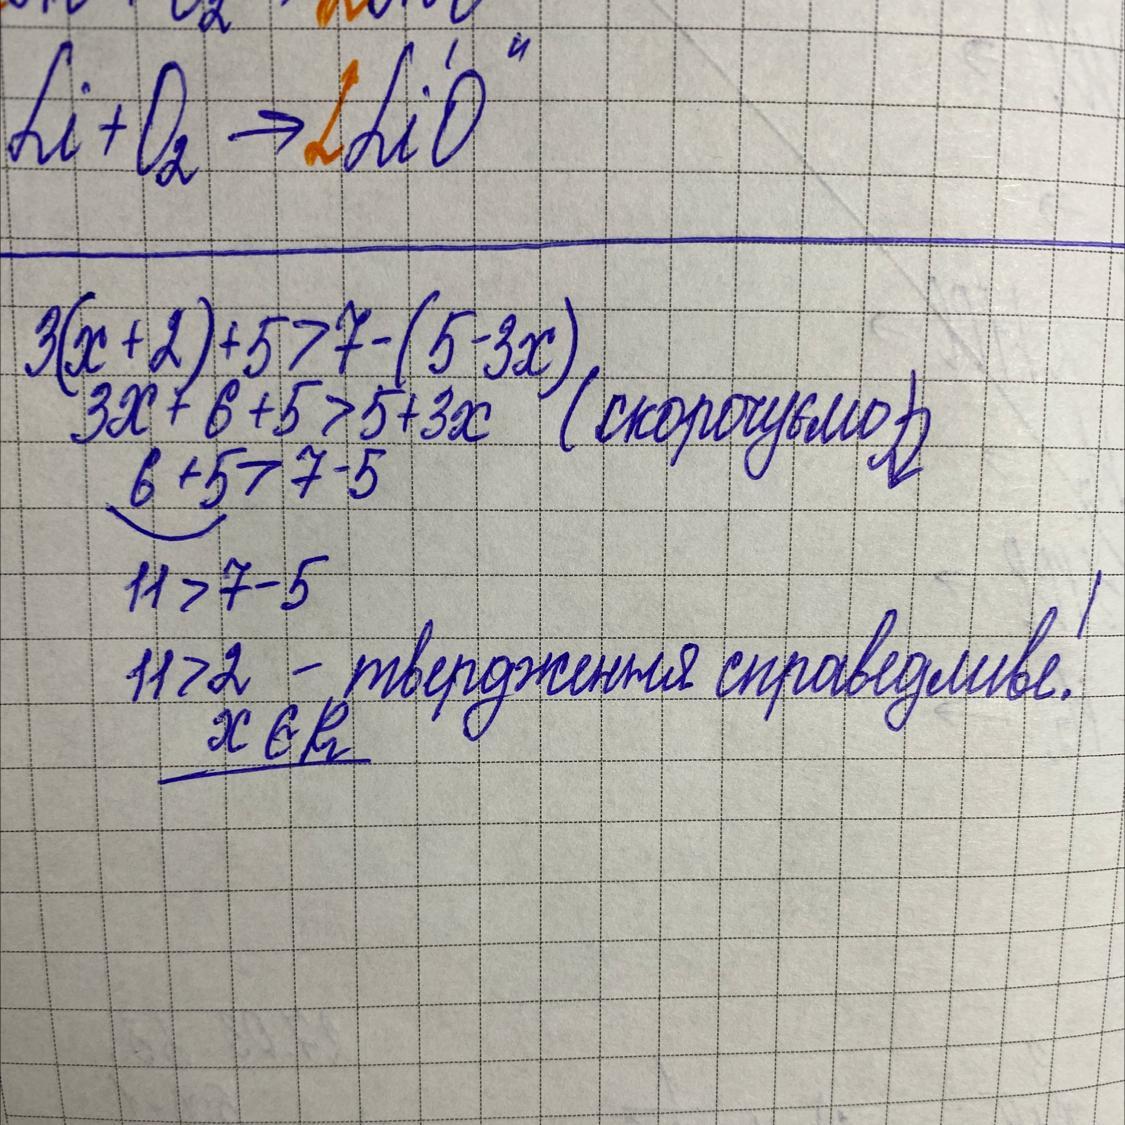 Li + O₂ → 2LiO
3(x+2)+5>7-(5-3x)
3x+6+5>5+3x (скорочуємо)
6+5>7-5
11>7-5
11>2 - твердження справедливе!
x∈R